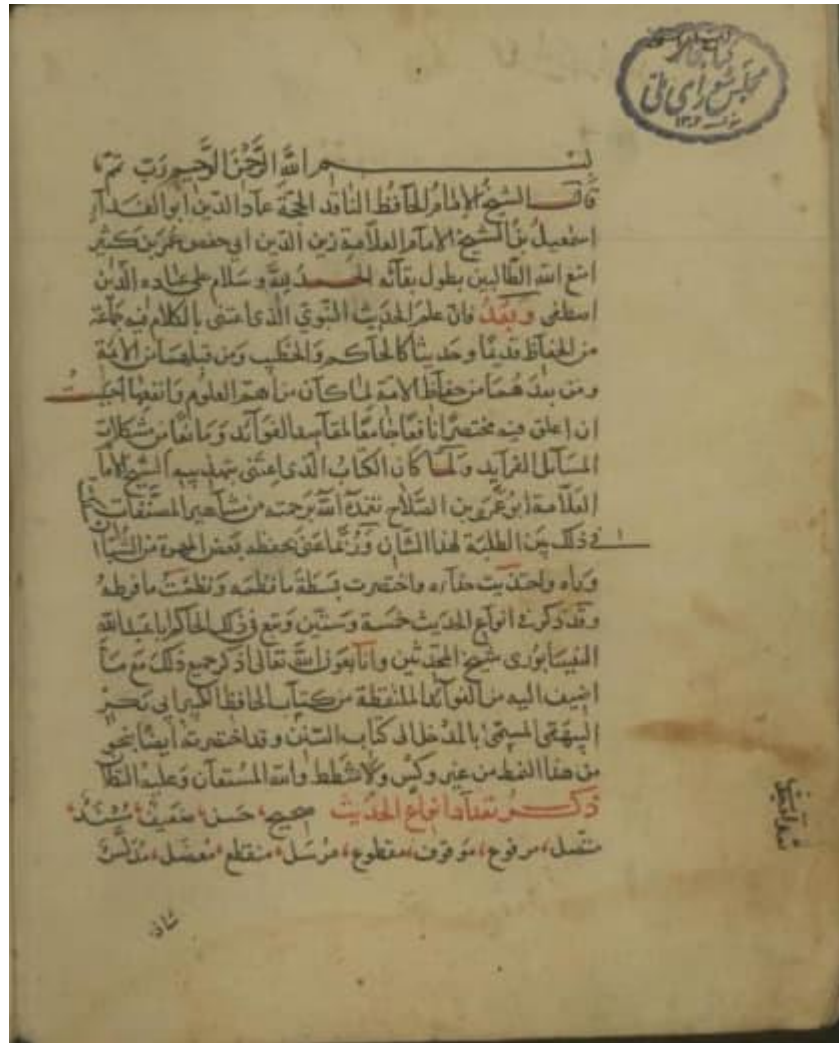 مجلس شورای ملی
بسم الله الرحمن الرحيم رب تمم
قال الشيخ الامام الحافظ الناقد الحجة عماد الدين ابو الفدآء
اسمعيل بن الشيخ الامام العلامة زين الدين ابي حفص عمر بن كثير
امتع الله الطالبين بطول بقآئه الحمد لله وسلام على عباده الذين
اصطفى وبعد فان علم الحديث النبوي الذي اعتنى بالكلام فيه جماعة
من الحفاظ قديما وحديثا كالحاكم والخطيب ومن قبلهما من الائمة
ومن بعدهما من حفاظ الامة لما كان من اهم العلوم وانفعها احببت
ان اعلق فيه مختصرا نافعا جامعا لمقاصد الفوآئد ومانعا من مشكلات
المسآئل الفرآيد ولما كان الكتاب الذي اعتنى بتهذيبه الشيخ الاما
العلامة ابو عمرو بن الصلاح تغمده الله برحمته من مشاهير المصنفات
في ذلك بين الطلبة لهذا الشان وربما عنى بحفظه بعض المهرة من الشبان
ورآه واحتذيت حذآءه واختصرت بسطة ما نظمه ونظمت ما فرطه
وقد ذكر في انواع الحديث خمسة وستين وتبع في ذلك الحاكم ابا عبد الله
النيسابوري شيخ المحدثين وانا بعون الله تعالى اذكر جميع ذلك مع ما
اضيف اليه من الفوآئد الملتقطة من كتاب الحافظ الكبير ابي بكر
البيهقي المسمى بالمدخل الى كتاب السنن وقد اختصرته ايضا بنحو
من هذا النمط من غير وكس ولا شطط والله المستعان وعليه التكلا
ذكر تعداد انواع الحديث صحيح، حسن، ضعيف، مسند،
متصل، مرفوع، موقوف، مقطوع، مرسل، منقطع، معضل، مدلس
شاذ